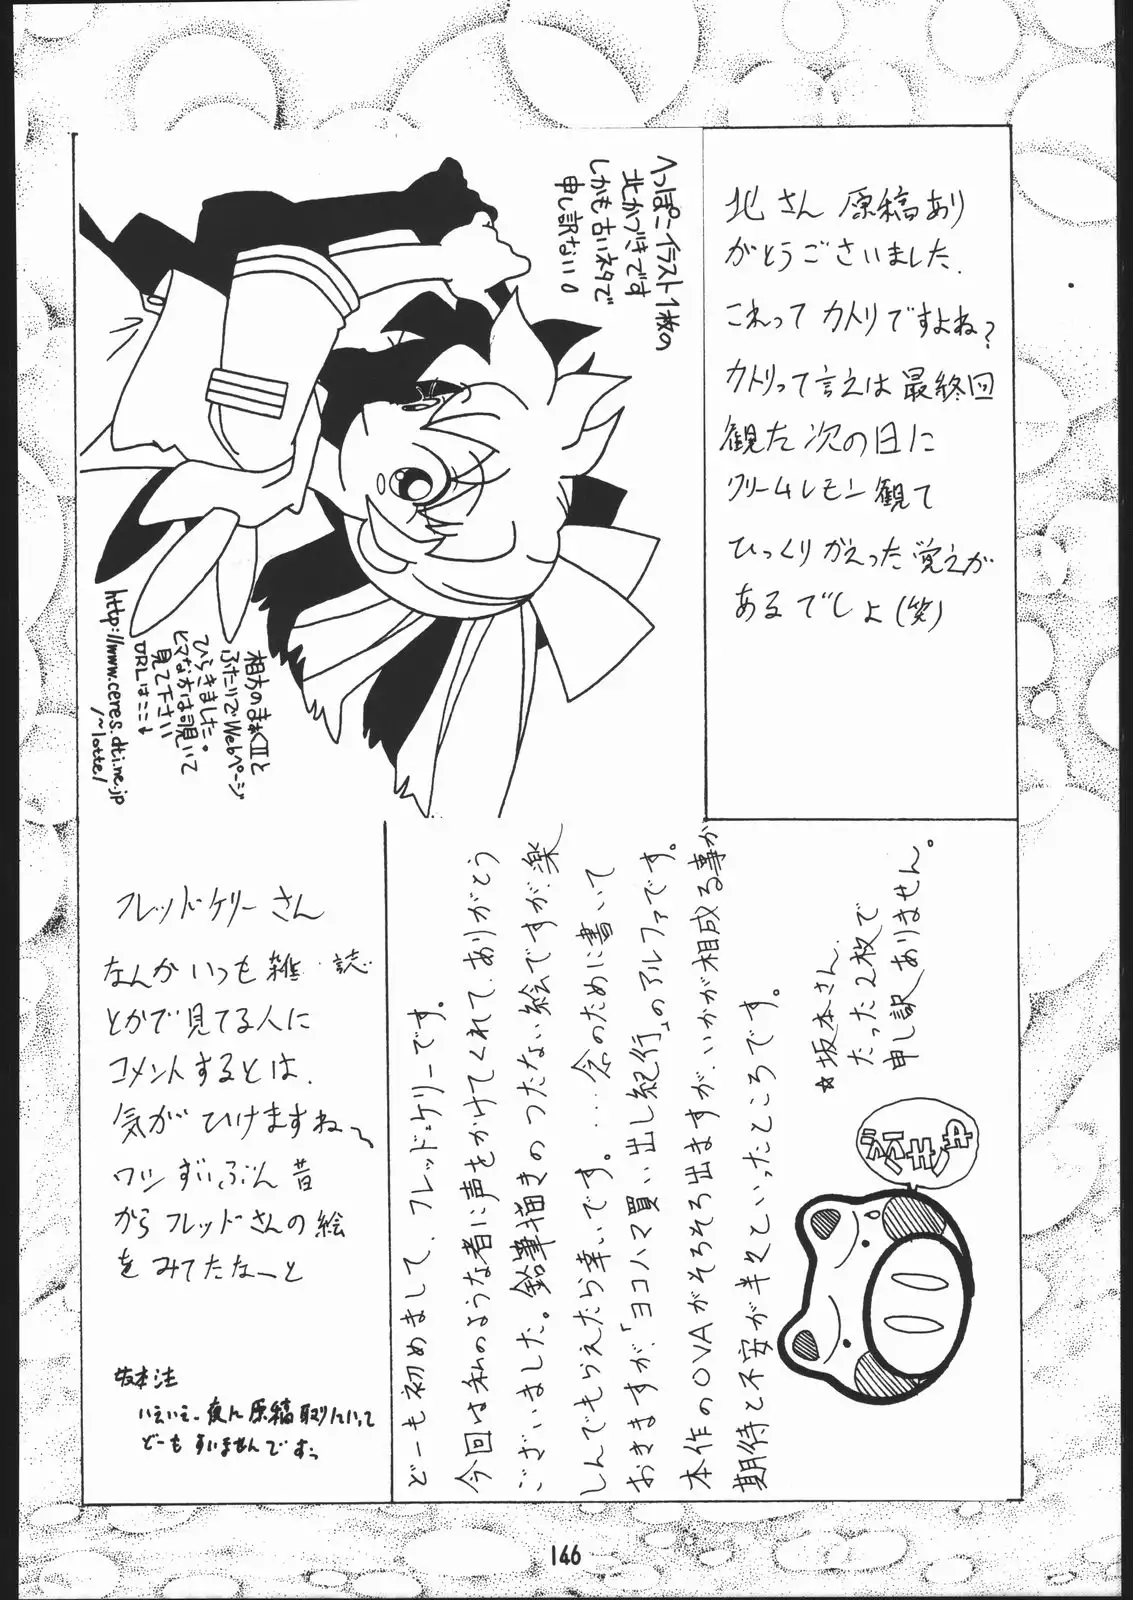 北さん 原稿あり
がとうございました.
これって カトリですよね?
カトリって言えは最終回
観た次の日に
クリームレモン観て
ひっくりがえった覚えが
あるでしょ(笑)
へっぽこイラスト1枚の
北かづきです
しかも古いネタで
申し訳ない。
相方のまぁくIIと
ふたりでWebページ
ひらきました。
ヒマな方は覗いて
見て下さい
URLはここ↓
http://www.ceres.dti.ne.jp
/~lotte/
フレッド・ケリーさん
なんかいつも雑誌
とかで見てる人に
コメントするとは、
気がひけますね〜
ワシずいぶん昔
からフレッドさんの絵
をみてたなーと
坂本注
いえいえ、夜に原稿取りにいって
どーもすいませんですっ
どーも初めまして、フレッド=ケリーです。
今回は私のような者に声をかけてくれて、ありがとう
ございました。鉛筆描きのつたない絵ですが、楽
しんでもらえたら幸いです。・・・念のために書いて
おきますが、「ヨコハマ買い出し紀行」のアルファです。
本作のOVAがそろそろ出ますが、いかが相成る事か
期待と不安が半々といったところです。
☆坂本さん、
たった2枚で
申し訳ありません。
146